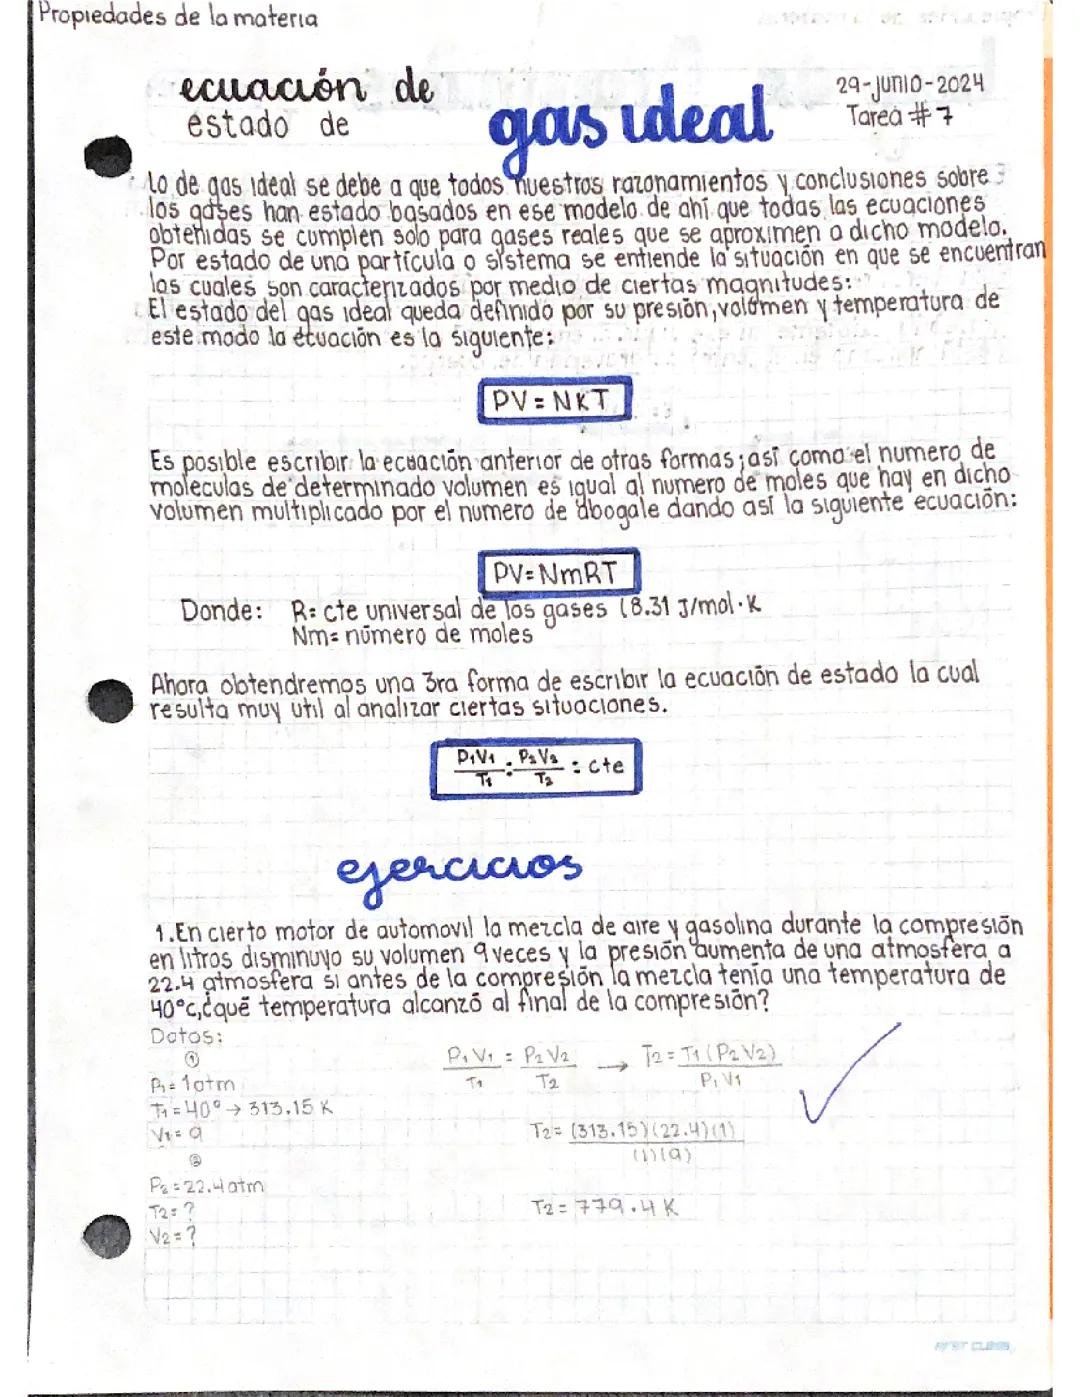 Propiedades de la materia
ecuación de
estado de
gas ideal
29-junio-2024
Tarea #7
Lo de gas ideal se debe a que todos nuestros razonamientos y conclusiones sobre
los gases han estado basados en ese modelo de ahí que todas las ecuaciones
obtenidas se cumplen solo para gases reales que se aproximen a dicho modelo.
Por estado de una partícula o sistema se entiende la situación en que se encuentran
las cuales son caracterizados por medio de ciertas magnitudes:
El estado del gas ideal queda definido por su presión, volúmen y temperatura de
este modo la ecuación es la siguiente:
PV = NKT
Es posible escribir la ecuación anterior de otras formas; así como el numero de
moleculas de determinado volumen es igual al numero de moles que hay en dicho
volumen multiplicado por el numero de abogale dando así la siguiente ecuación:
PV=NmRT
Donde: R= cte universal de los gases (8.31 J/mol·K
Nm= número de moles
Ahora obtendremos una 3ra forma de escribir la ecuación de estado la cual
resulta muy util al analizar ciertas situaciones.
P1V1 = P2V2 = cte
T1 T2
ejercicios
1.En cierto motor de automovil la mezcla de aire y gasolina durante la compresión
en litros disminuyo su volumen 9 veces y la presión aumenta de una atmosfera a
22.4 atmosfera si antes de la compresión la mezcla tenía una temperatura de
40°c,¿qué temperatura alcanzó al final de la compresión?
Datos:
①
P1= 1atm
T1=40° → 313.15 K
V1= 9
②
P2=22.4atm
T2=?
V2=?
P1 V1 = P2 V2 → T2= T1 (P2 V2)
T1 T2 P1 V1
T2= (313.15)(22.4)(1)
(1)(9)
T2= 779.4 K